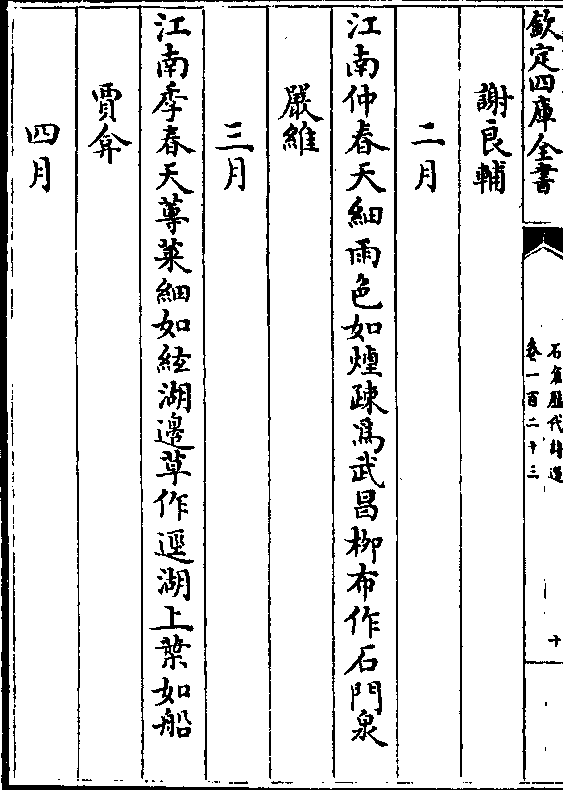 欽定四庫全書
石倉歷代詩選
卷一百二十三
十
謝良輔
二月
江南仲春天細雨色如煙疎爲武昌柳布作石門泉
嚴維
三月
江南季春天蓴菜細如絃湖邊草作逕湖上葉如船
賈弇
四月